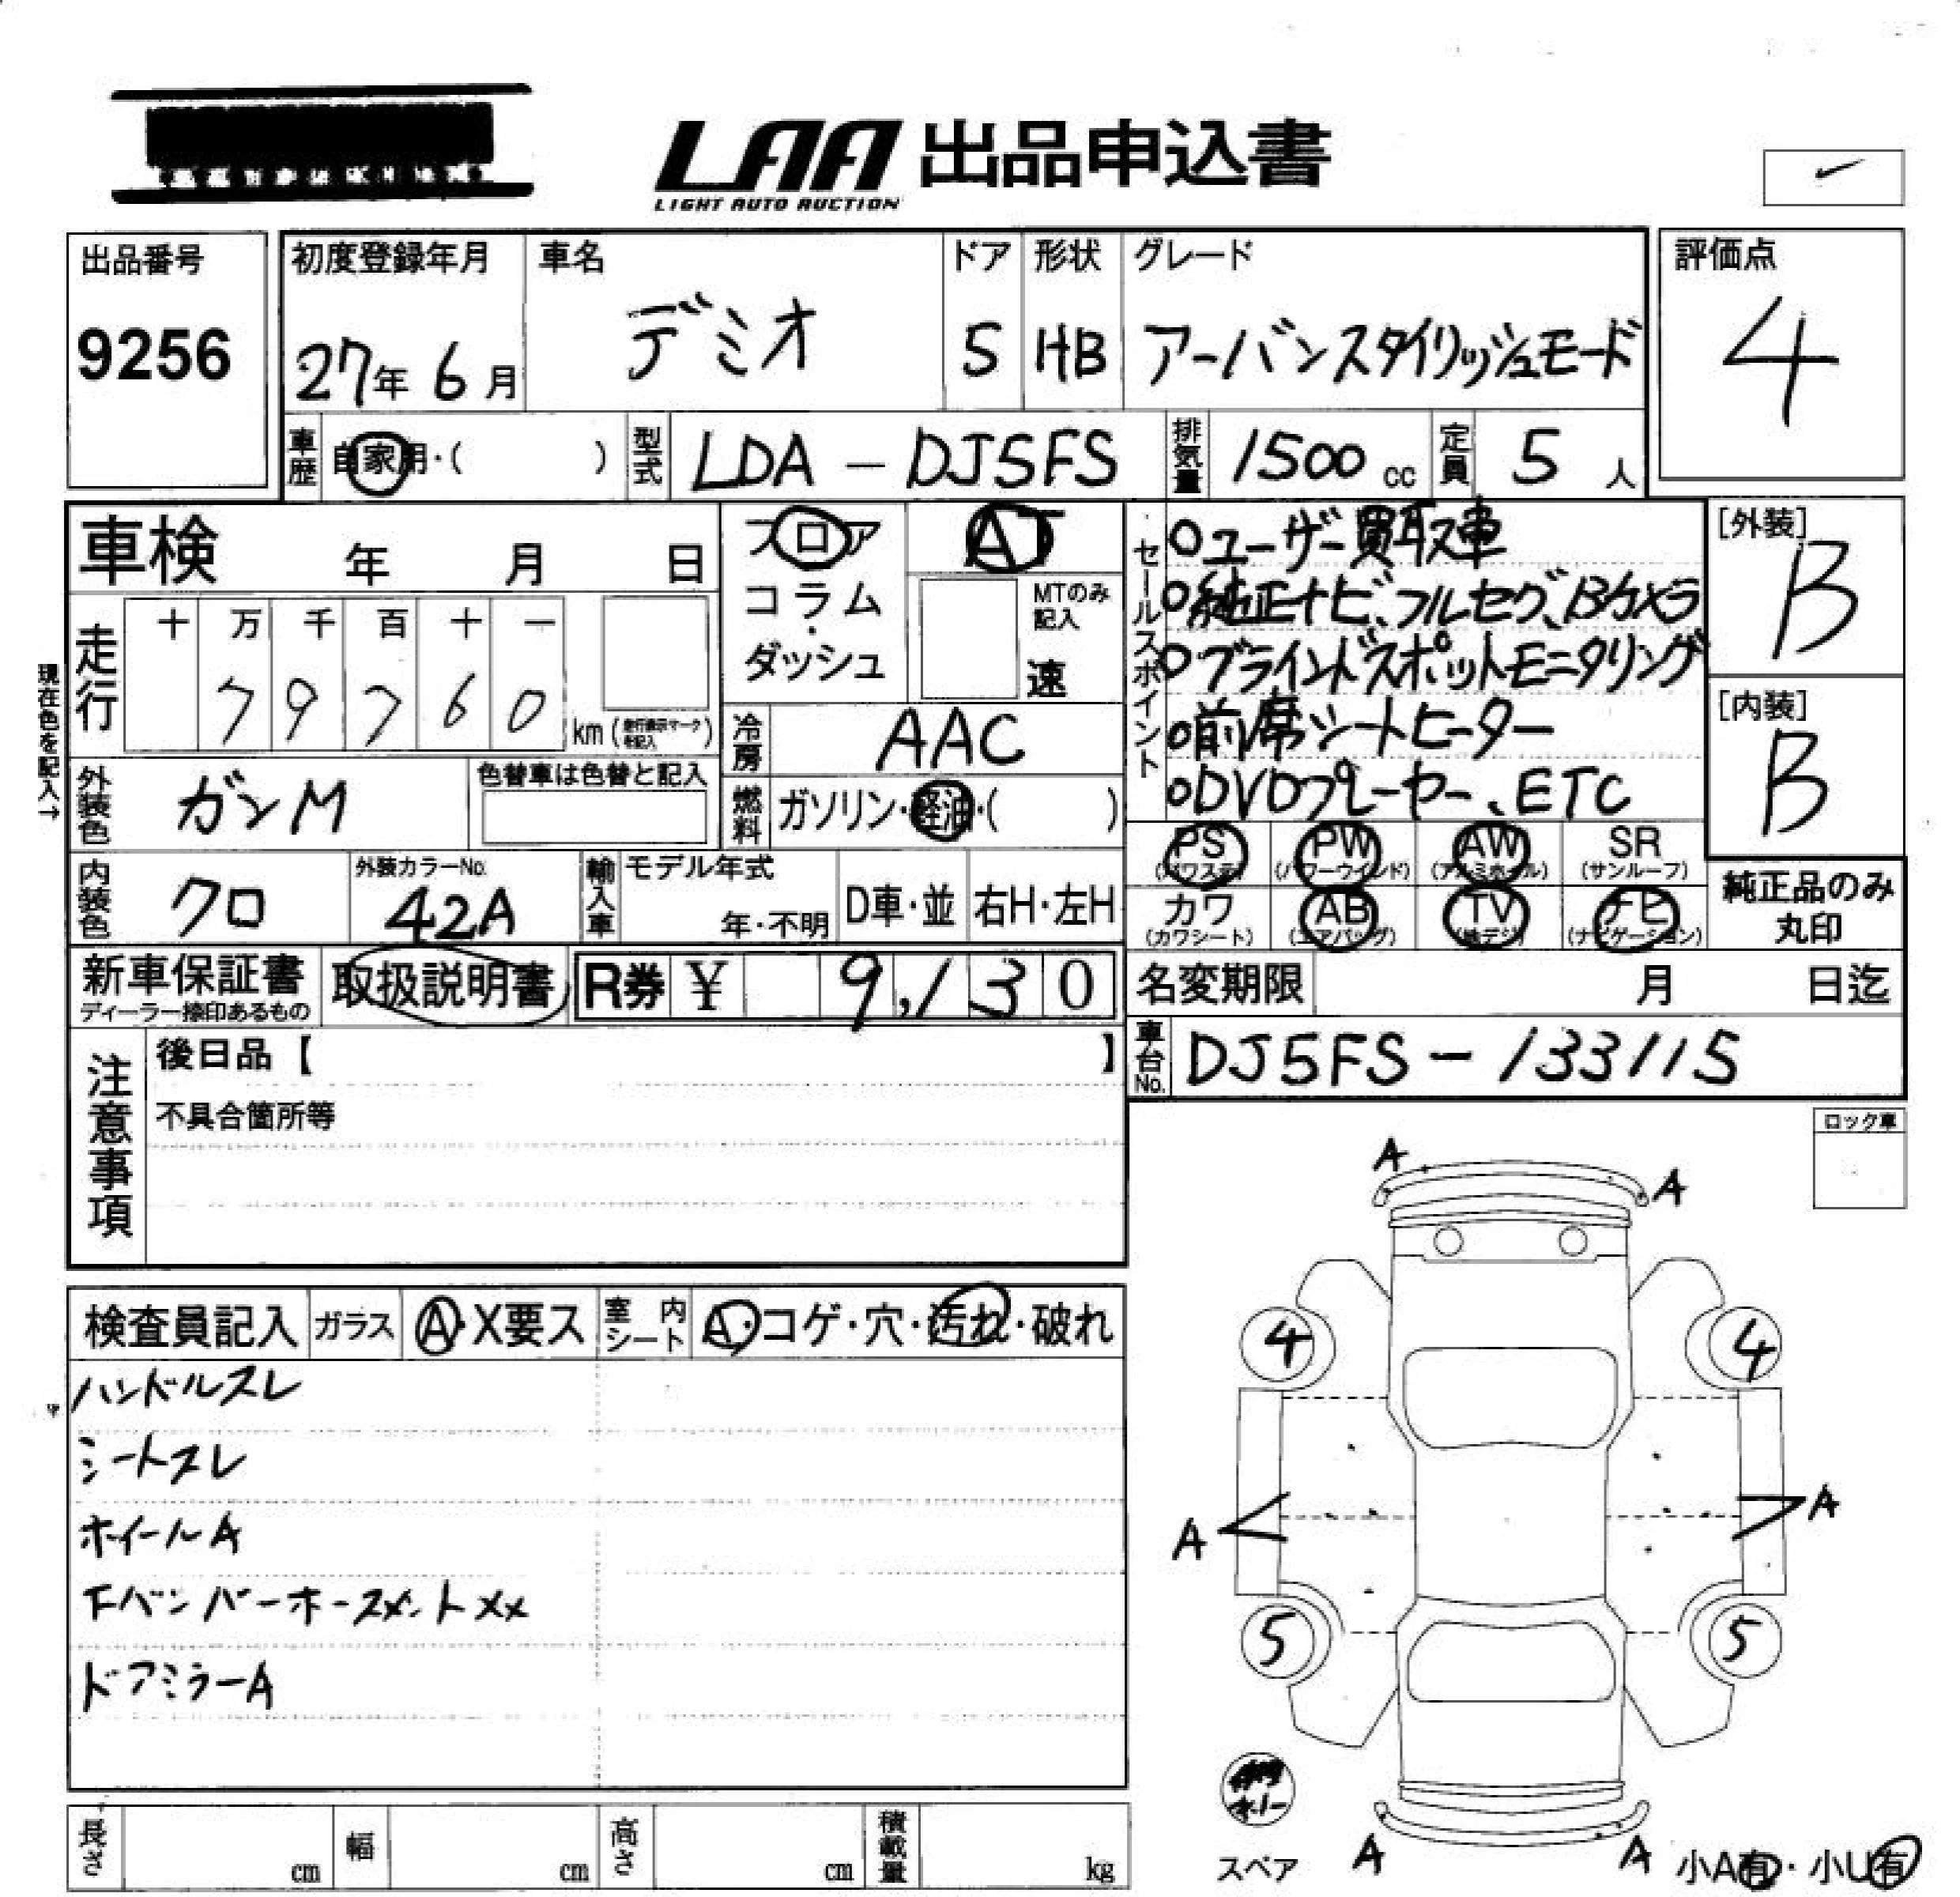 LAA 出品申込書
LIGHT AUTO AUCTION
出品番号
9256
初度登録年月
27年 6月
車名
デミオ
ドア
5
形状
HB
グレード
アーバンスタイリッシュモード
評価点
4
車歴 自家用・( )
型式 LDA - DJ5FS
排気量 1500 cc
定員 5 人
車検 年 月 日
フロア
コラム
・
ダッシュ
AT
MTのみ
記入
速
セールスポイント
○ユーザー買取車
○純正ナビ、フルセグ、Bカメラ
○ブラインドスポットモニタリング
○前席シートヒーター
○DVDプレーヤー、ETC
[外装]
B
[内装]
B
現在色を記入→
走行
十 万 千 百 十 一
7 9 7 6 0
km (走行表示マークを記入)
冷房 AAC
外装色 ガンM
色替車は色替と記入
燃料 ガソリン・軽油・( )
PS (パワステ)
PW (パワーウインド)
AW (アルミホイール)
SR (サンルーフ)
カワ (カワシート)
AB (エアバッグ)
TV (地デジ)
ナビ (ナビゲーション)
純正品のみ
丸印
内装色 クロ
外装カラーNo.
42A
輸入車
モデル年式
年・不明
D車・並
右H・左H
新車保証書
ディーラー捺印あるもの
取扱説明書
R券 ¥ 9,130
名変期限 月 日迄
車台No. DJ5FS-133115
注意事項
後日品【 】
不具合箇所等
ロック車
検査員記入
ガラス A・X要ス
室内シート A・コゲ・穴・汚れ・破れ
ハンドルスレ
シートスレ
ホイールA
ドアミラーA
A
A
4
4
A
A
5
5
スペア
A
A
小A有・小U有
長さ cm
幅 cm
高さ cm
積載量 kg